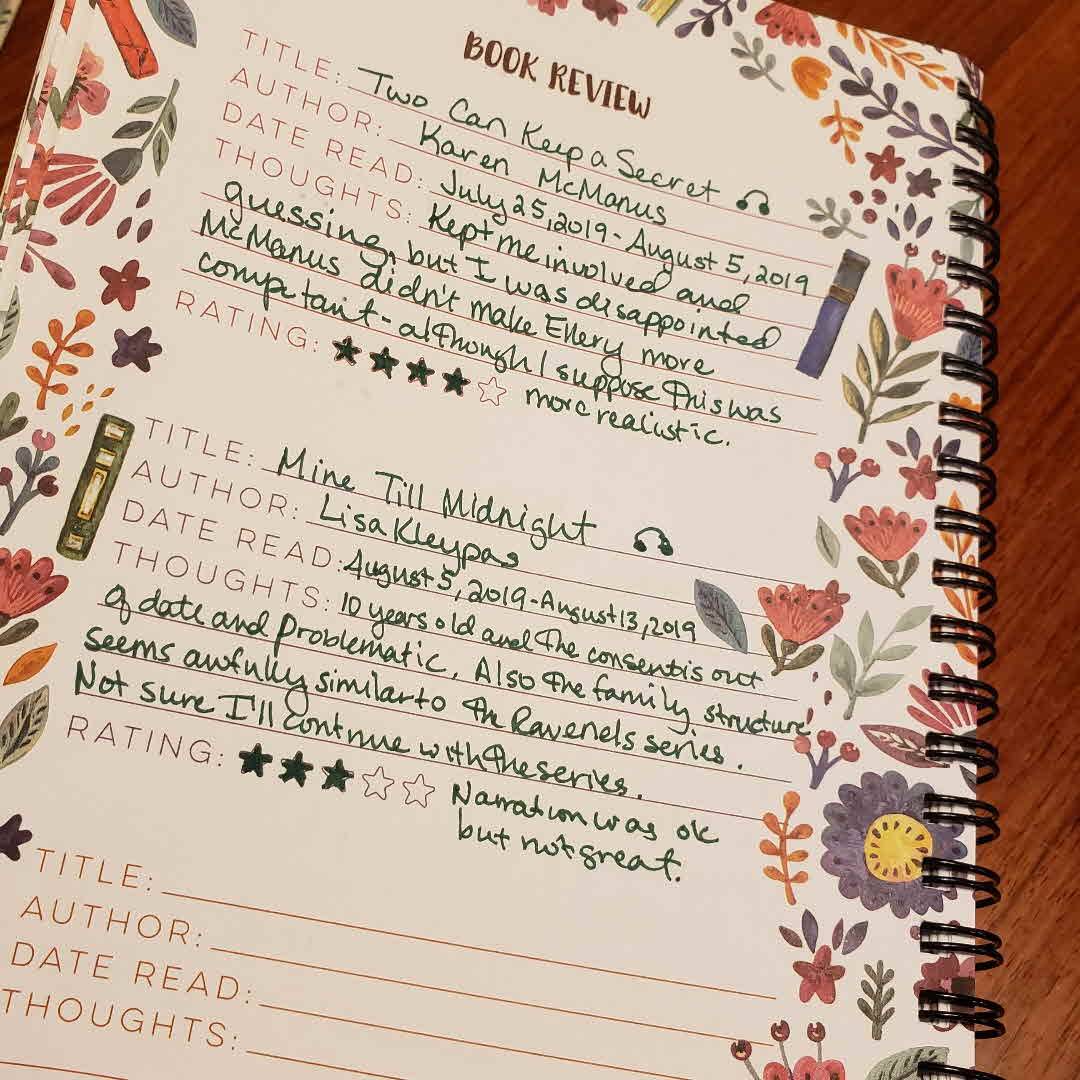 BOOK REVIEW
TITLE: Two Can Keep a Secret
AUTHOR: Karen McManus
DATE READ: July 25, 2019 - August 5, 2019
THOUGHTS: Kept me involved and
guessing, but I was disappointed
McManus didn't make Ellery more
competant - although I suppose this was
RATING: more realistic.
TITLE: Mine Till Midnight
AUTHOR: Lisa Kleypas
DATE READ: August 5, 2019 - August 13, 2019
THOUGHTS: 10 years old and the consent is out
of date and problematic. Also the family structure
seems awfully similar to the Ravenels series.
Not sure I'll continue with the series.
RATING: Narration was ok
but not great.
TITLE:
AUTHOR:
DATE READ:
THOUGHTS: